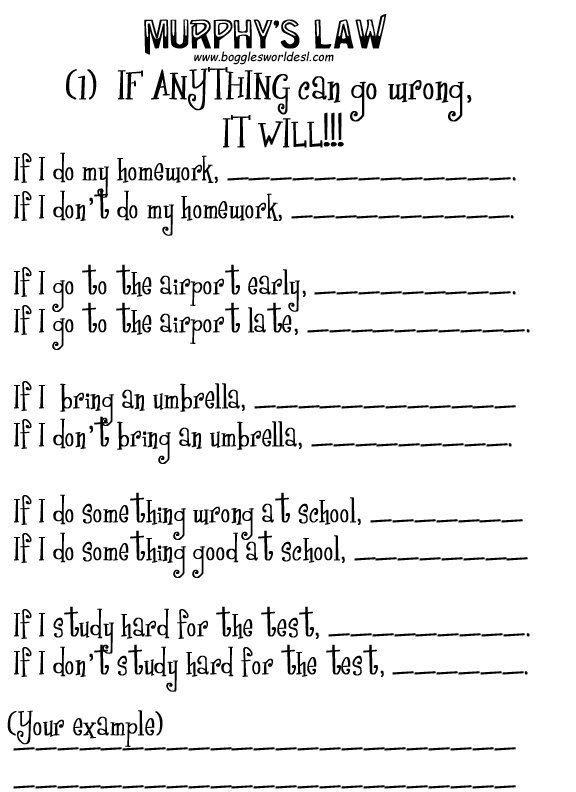 MURPHY'S LAW
www.bogglesworldesl.com
(1) IF ANYTHING can go wrong,
IT WILL!!!
If I do my homework, _____________.
If I don't do my homework, __________.
If I go to the airport early, _________.
If I go to the airport late, __________.
If I bring an umbrella, ____________
If I don't bring an umbrella, _________.
If I do something wrong at school, _______
If I do something good at school, ________
If I study hard for the test, _________.
If I don't study hard for the test, ______.
(Your example)
_______________________
_______________________